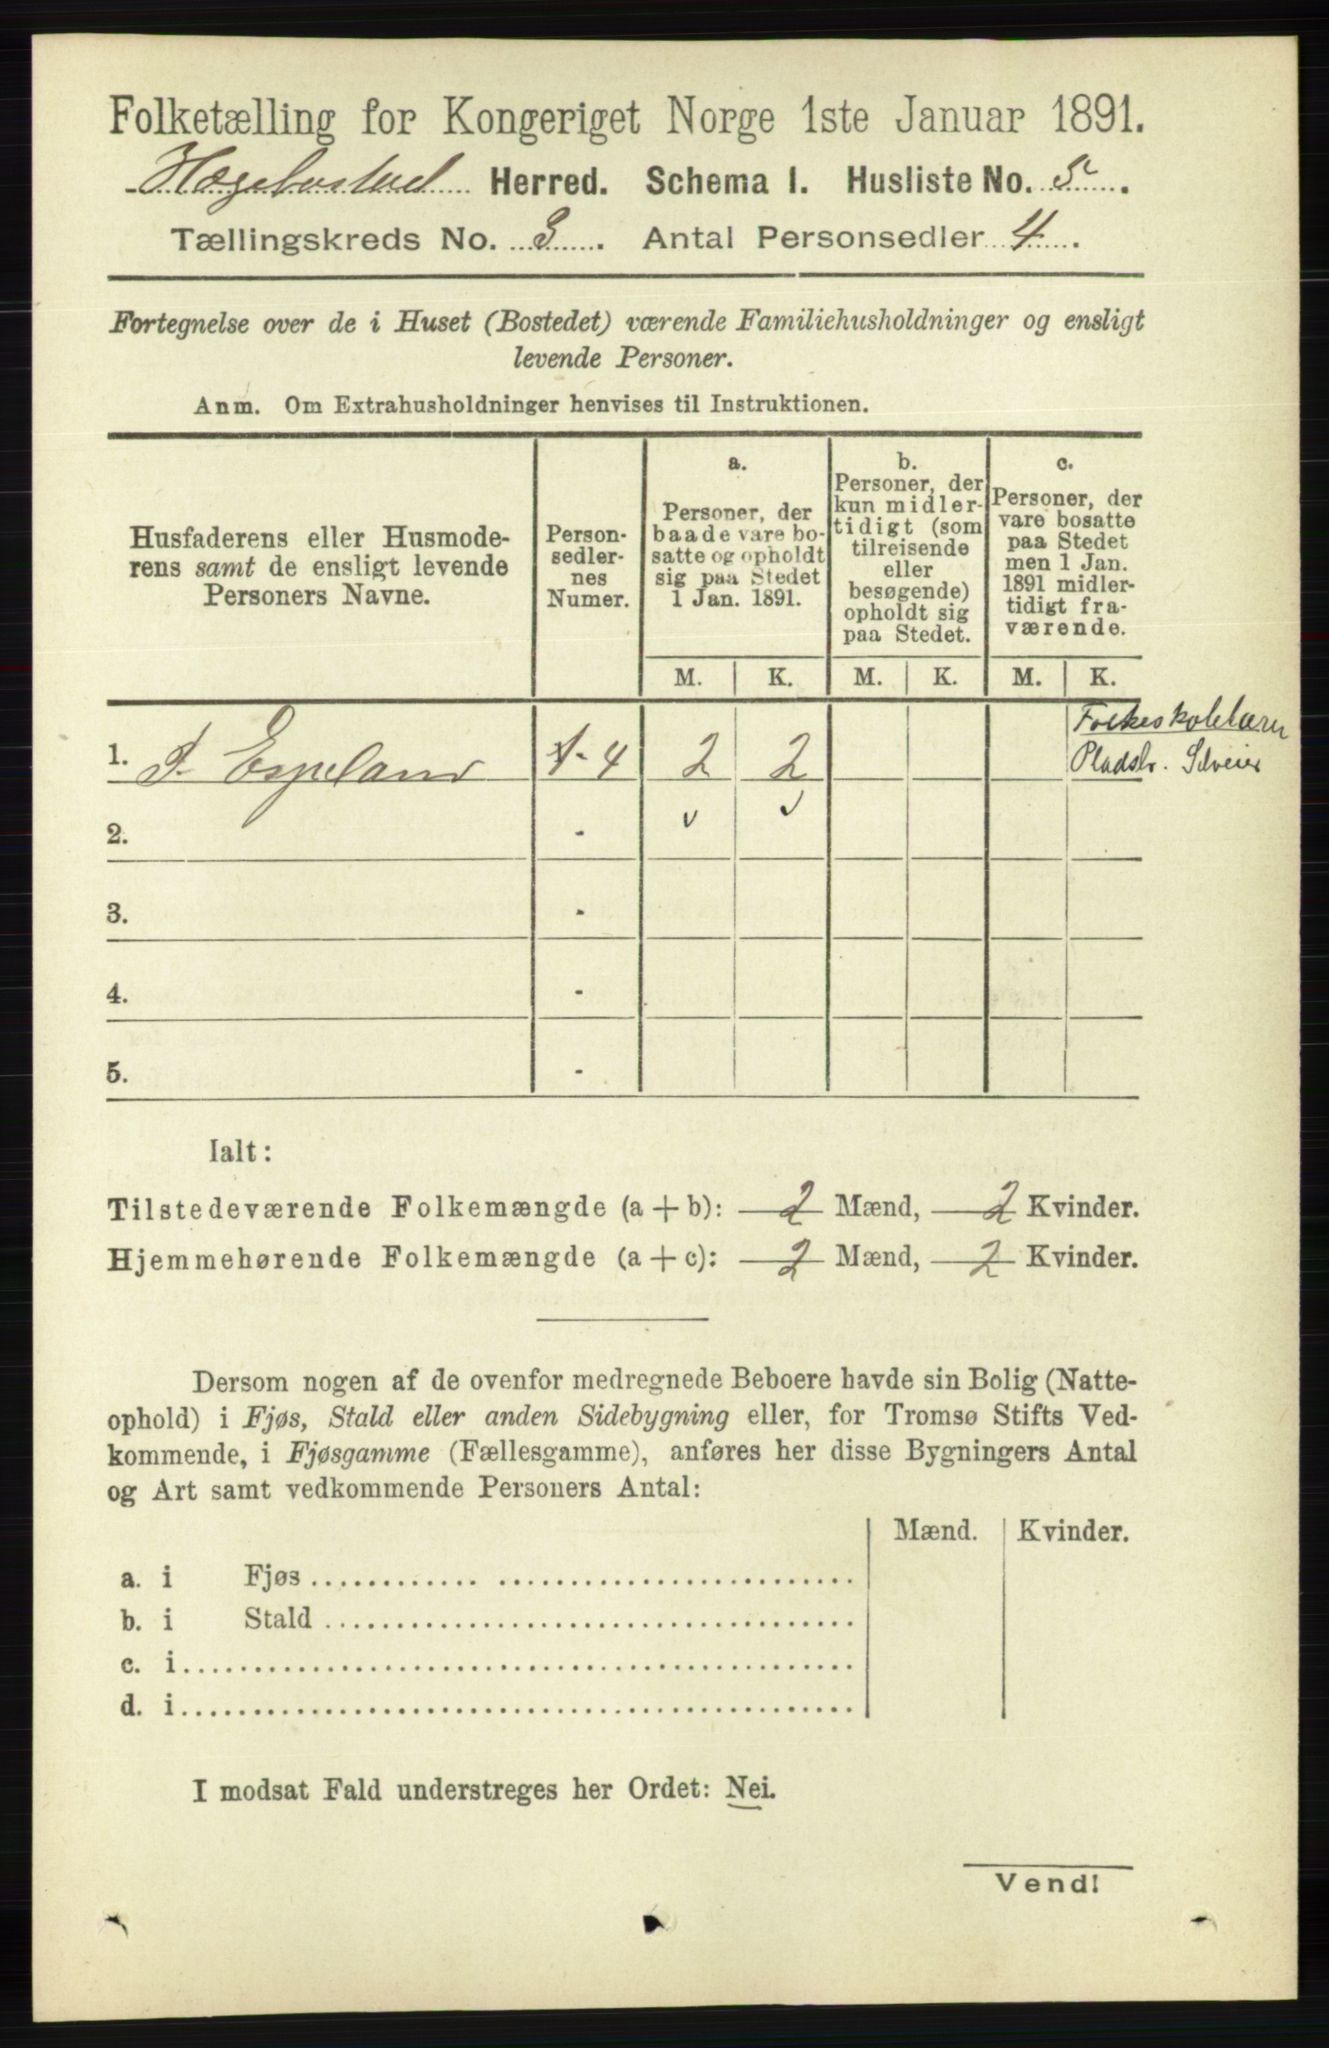 Folketælling for Kongeriget Norge 1ste Januar 1891.
Hægebostad Herred. Schema I. Husliste No. 5.
Tællingskreds No. 3. Antal Personsedler 4.
Fortegnelse over de i Huset (Bostedet) værende Familiehusholdninger og ensligt
levende Personer.
Anm. Om Extrahusholdninger henvises til Instruktionen.
Husfaderens eller Husmode-
rens samt de ensligt levende
Personers Navne.
Person-
sedler-
nes
Numer.
a.
Personer, der
baade vare bo-
satte og opholdt
sig paa Stedet
1 Jan. 1891.
b.
Personer, der
kun midler-
tidigt (som
tilreisende
eller
besøgende)
opholdt sig
paa Stedet.
c.
Personer, der
vare bosatte
paa Stedet
men 1 Jan.
1891 midler-
tidigt fra-
værende.
M. K. M. K. M. K.
Folkeskolelærer
1. Espeland 1-4 2 2 Pladsbr. Selveier
2. - v v
3. -
4. -
5. -
Ialt:
Tilstedeværende Folkemængde (a + b): 2 Mænd, 2 Kvinder.
Hjemmehørende Folkemængde (a + c): 2 Mænd, 2 Kvinder.
Dersom nogen af de ovenfor medregnede Beboere havde sin Bolig (Natte-
ophold) i Fjøs, Stald eller anden Sidebygning eller, for Tromsø Stifts Ved-
kommende, i Fjøsgamme (Fællesgamme), anføres her disse Bygningers Antal
og Art samt vedkommende Personers Antal:
Mænd. Kvinder.
a. i Fjøs
b. i Stald
c. i
d. i
I modsat Fald understreges her Ordet: Nei.
Vend!